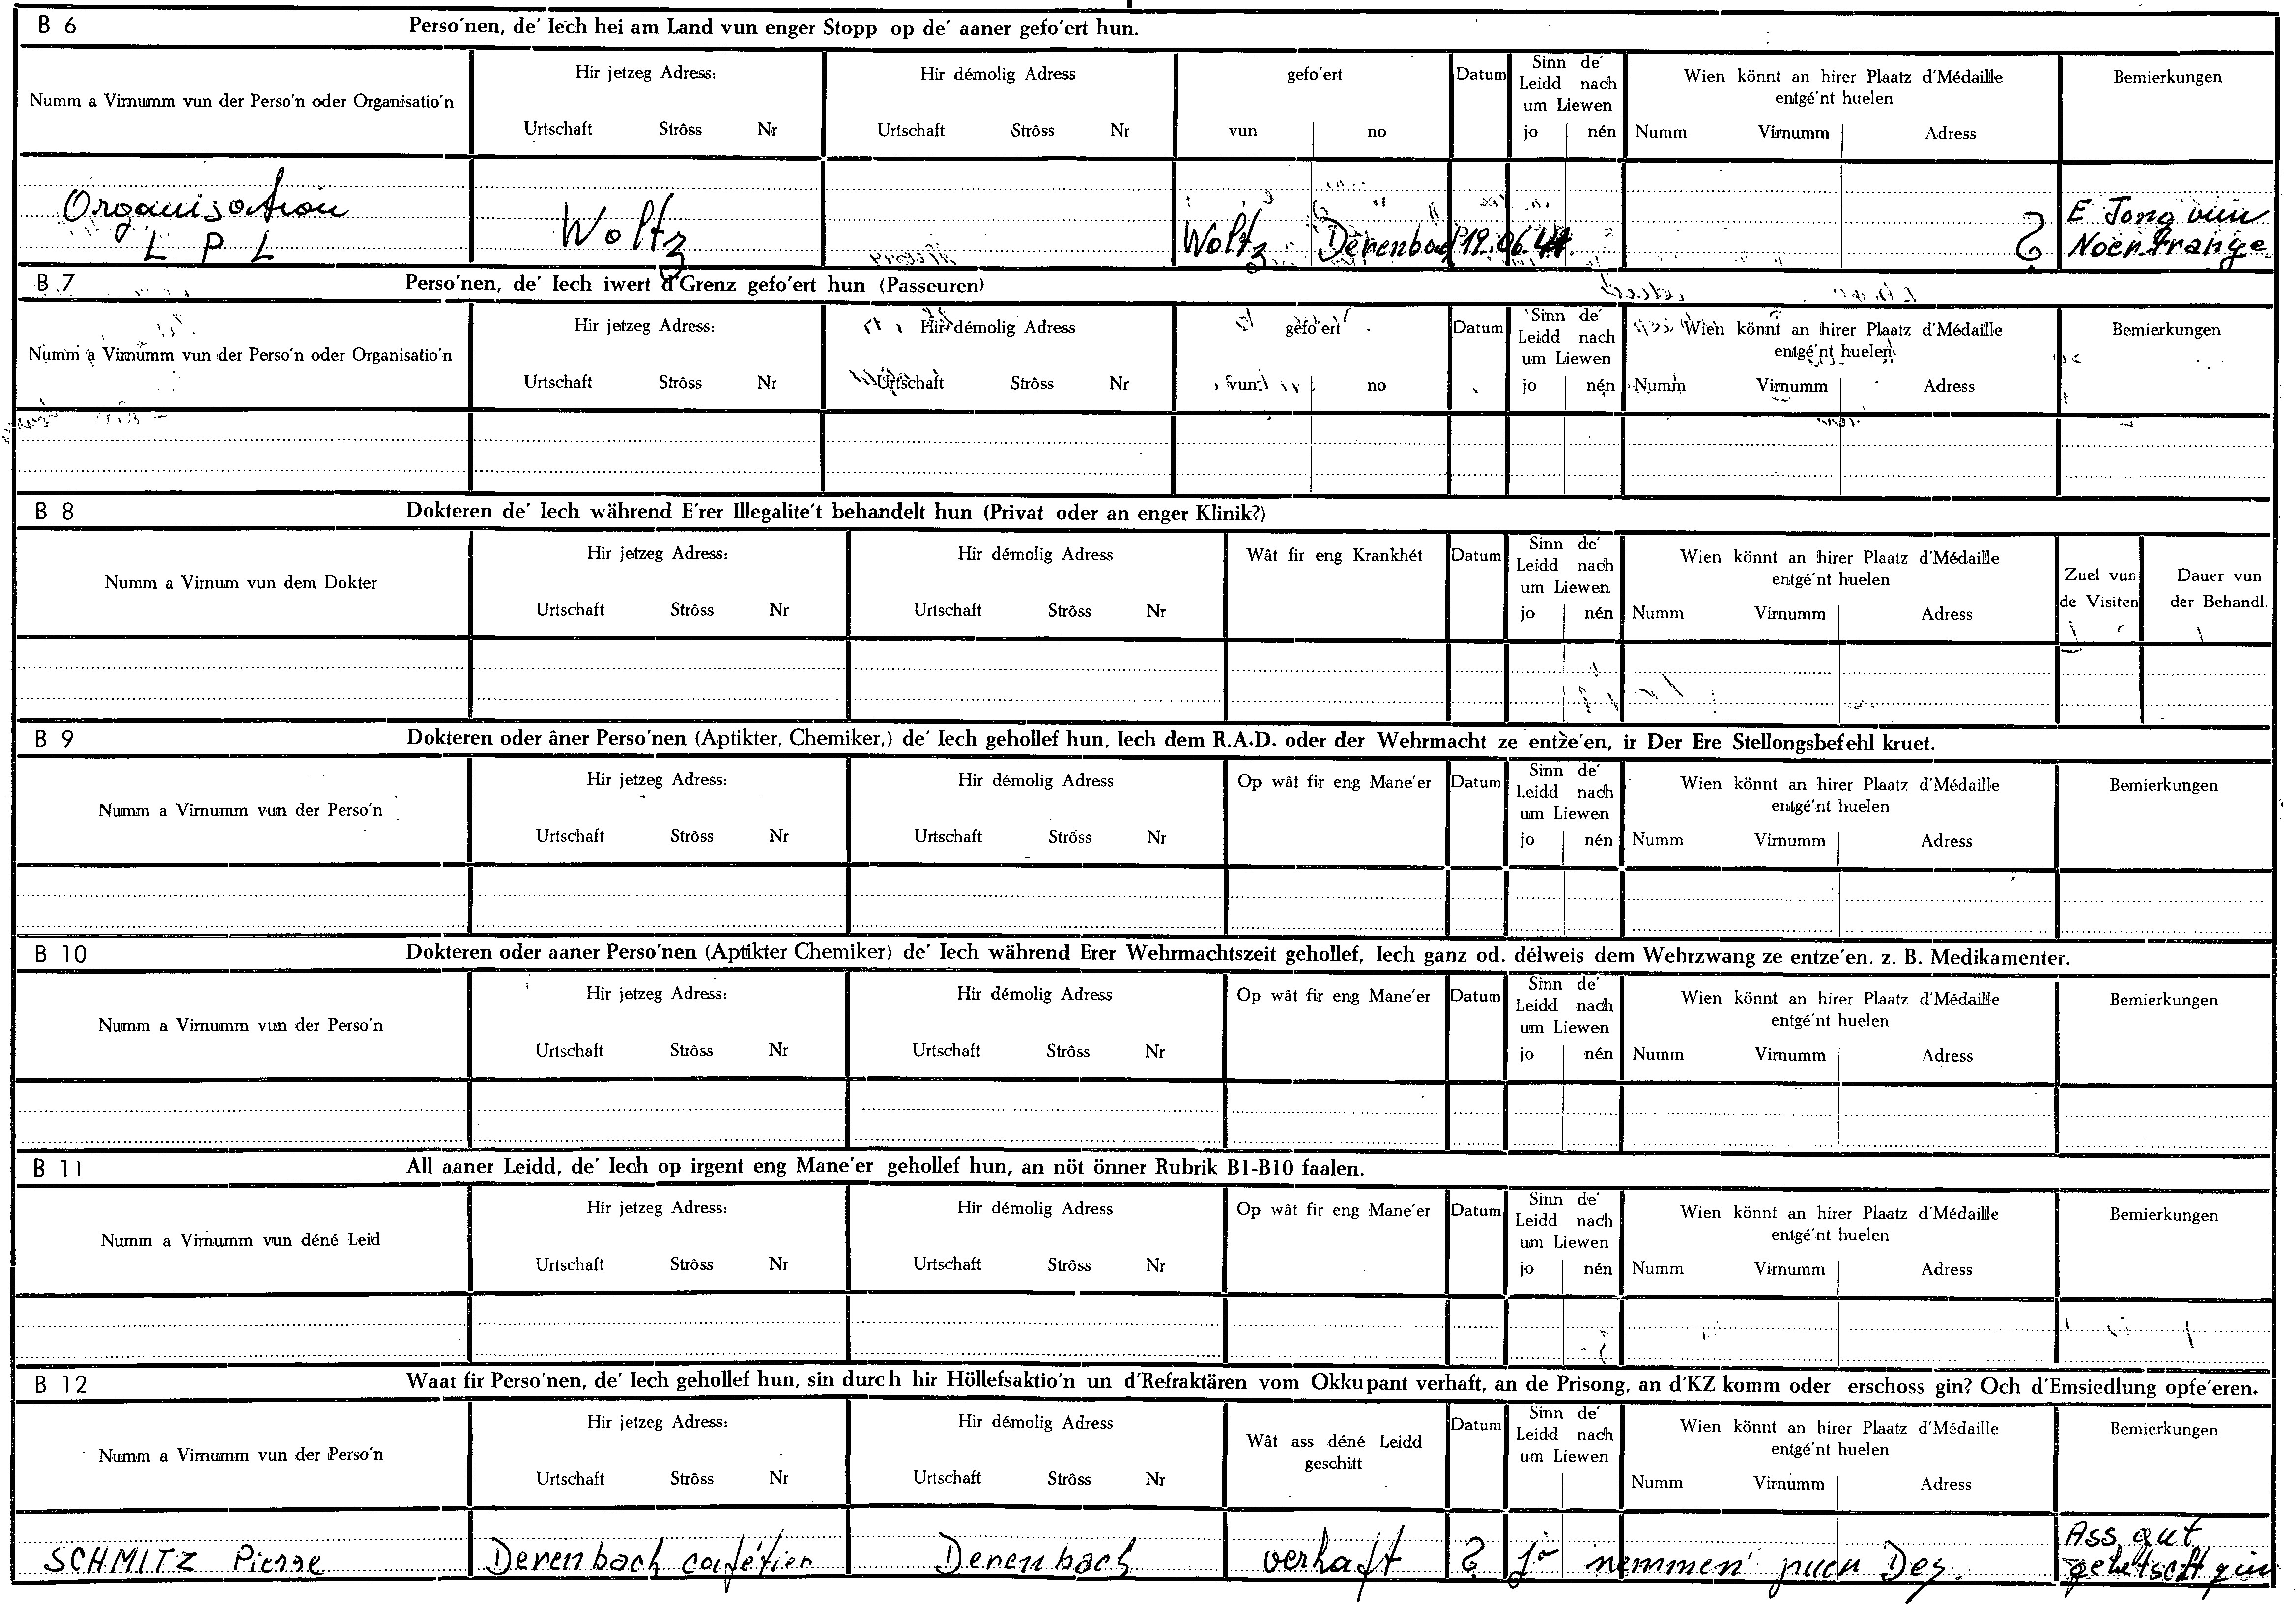 B 6 Perso'nen, de' Iech hei am Land vun enger Stopp op de' aaner gefo'ert hun.
Numm a Virnumm vun der Perso'n oder Organisatio'n
Hir jetzeg Adress:
Urtschaft Strôss Nr
Hir démolig Adress
Urtschaft Strôss Nr
gefo'ert
vun no
Datum
Sinn de'
Leidd nach
um Liewen
jo nén
Wien könnt an hirer Plaatz d'Médaille
entgé'nt huelen
Numm Virnumm Adress
Bemierkungen
Organisation
L P L
Woltz
Woltz
Derenbach
19.06.44.
?
E Jong vun
Noertrange
B 7 Perso'nen, de' Iech iwert d'Grenz gefo'ert hun (Passeuren)
Numm a Virnumm vun der Perso'n oder Organisatio'n
Hir jetzeg Adress:
Urtschaft Strôss Nr
Hir démolig Adress
Urtschaft Strôss Nr
gefo'ert
vun no
Datum
Sinn de'
Leidd nach
um Liewen
jo nén
Wien könnt an hirer Plaatz d'Médaille
entgé'nt huelen
Numm Virnumm Adress
Bemierkungen
B 8 Dokteren de' Iech während E'rer Illegalite't behandelt hun (Privat oder an enger Klinik?)
Numm a Virnum vun dem Dokter
Hir jetzeg Adress:
Urtschaft Strôss Nr
Hir démolig Adress
Urtschaft Strôss Nr
Wât fir eng Krankhét
Datum
Sinn de'
Leidd nach
um Liewen
jo nén
Wien könnt an hirer Plaatz d'Médaille
entgé'nt huelen
Numm Virnumm Adress
Zuel vun
de Visiten
Dauer vun
der Behandl.
B 9 Dokteren oder âner Perso'nen (Aptikter, Chemiker,) de' Iech gehollef hun, Iech dem R.A.D. oder der Wehrmacht ze entze'en, ir Der Ere Stellongsbefehl kruet.
Numm a Virnumm vun der Perso'n
Hir jetzeg Adress:
Urtschaft Strôss Nr
Hir démolig Adress
Urtschaft Strôss Nr
Op wât fir eng Mane'er
Datum
Sinn de'
Leidd nach
um Liewen
jo nén
Wien könnt an hirer Plaatz d'Médaille
entgé'nt huelen
Numm Virnumm Adress
Bemierkungen
B 10 Dokteren oder aaner Perso'nen (Aptikter Chemiker) de' Iech während Erer Wehrmachtszeit gehollef, Iech ganz od. délweis dem Wehrzwang ze entze'en. z. B. Medikamenter.
Numm a Virnumm vun der Perso'n
Hir jetzeg Adress:
Urtschaft Strôss Nr
Hir démolig Adress
Urtschaft Strôss Nr
Op wât fir eng Mane'er
Datum
Sinn de'
Leidd nach
um Liewen
jo nén
Wien könnt an hirer Plaatz d'Médaille
entgé'nt huelen
Numm Virnumm Adress
Bemierkungen
B 11 All aaner Leidd, de' Iech op irgent eng Mane'er gehollef hun, an nöt önner Rubrik B1-B10 faalen.
Numm a Virnumm vun déné Leid
Hir jetzeg Adress:
Urtschaft Strôss Nr
Hir démolig Adress
Urtschaft Strôss Nr
Op wât fir eng Mane'er
Datum
Sinn de'
Leidd nach
um Liewen
jo nén
Wien könnt an hirer Plaatz d'Médaille
entgé'nt huelen
Numm Virnumm Adress
Bemierkungen
B 12 Waat fir Perso'nen, de' Iech gehollef hun, sin durch hir Höllefsaktio'n un d'Refraktären vom Okkupant verhaft, an de Prisong, an d'KZ komm oder erschoss gin? Och d'Emsiedlung opfe'eren.
Numm a Virnumm vun der Perso'n
Hir jetzeg Adress:
Urtschaft Strôss Nr
Hir démolig Adress
Urtschaft Strôss Nr
Wât ass déné Leidd
geschitt
Datum
Sinn de'
Leidd nach
um Liewen
Wien könnt an hirer Plaatz d'Médaille
entgé'nt huelen
Numm Virnumm Adress
Bemierkungen
SCHMITZ Pierre
Derenbach cafétier
Derenbach
verhaft
?
jo nemmen puer Deg.
Ass gut
gin